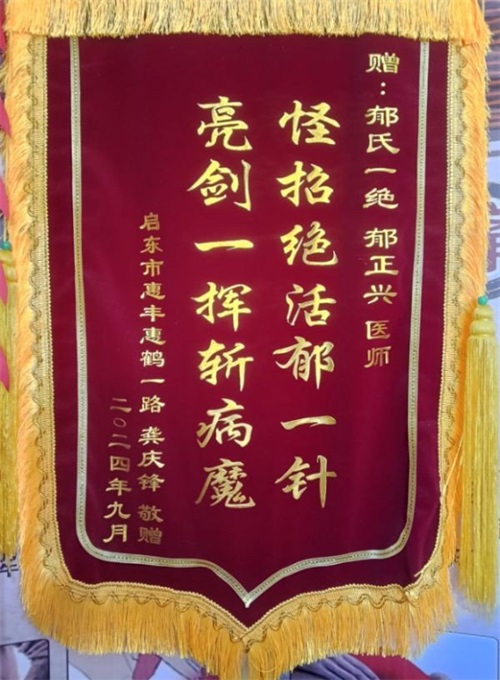 赠：郁氏一绝 郁正兴 医师
怪招绝活郁一针
亮剑一挥斩病魔
启东市惠丰惠鹤一路 龚庆锋 敬赠
二〇二四年九月